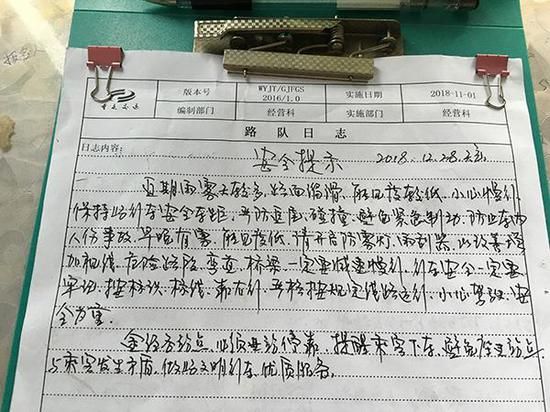 版本号 WYJT/GJFGS 2016/1.0 实施日期 2018-11-01
编制部门 经营科 实施部门 经营科
路队日志
日志内容:
安全提示 2018.12.28.
近期雨雾天较多,路面湿滑,能见度较低,小心慢行,
保持与行车安全车距,严防追尾,碰撞,避免紧急制动,防止车内
人伤事故,早晚有雾,能见度低,请开启防雾灯,雨刮器,以改善增
加视线,危险路段,弯道,桥梁一定要减速慢行,行车安全一定要
牢记,按标识,标线,靠右行,严格按规定线路运行,小心驾驶,安
全为重。
站点,必须进站停靠,提醒乘客下车,避免在站点
与乘客发生矛盾,做好文明行车,优质服务。